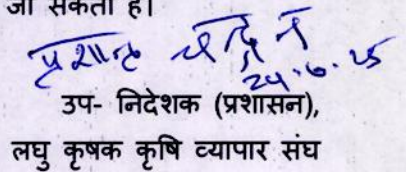 जा सकता है।
प्रशान्त
24.6.25
उप- निदेशक (प्रशासन),
लघु कृषक कृषि व्यापार संघ